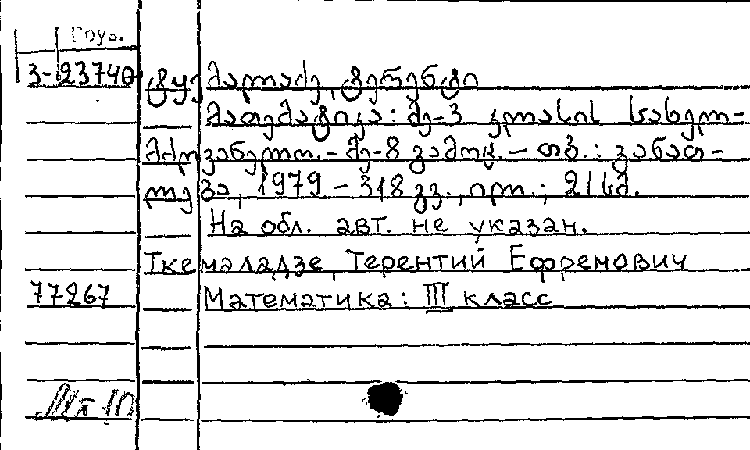 Груз.
3-23740
ტყემალაძე, ტერენტი
მათემატიკა: მე-3 კლასის სახელ-
მძღვანელო.- მე-8 გამოც.- თბ.: განათ-
ლება, 1979 - 318 გვ., ილ.; 21 სმ.
На обл. авт. не указан.
Ткемаладзе, Терентий Ефремович
77267
Математика: III класс